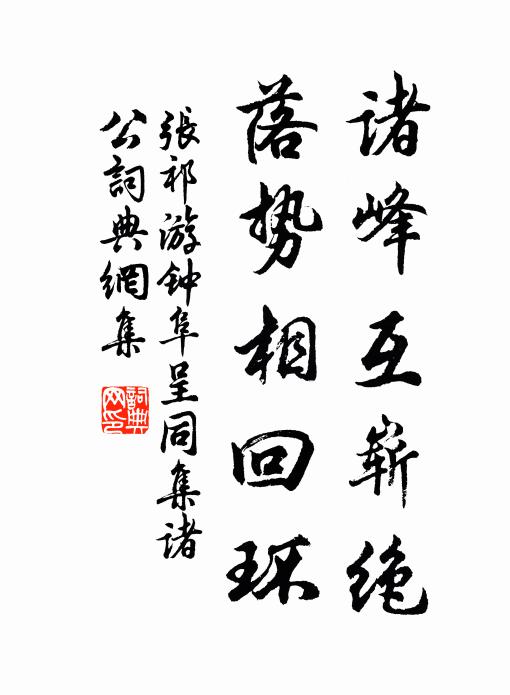 诸峰互崭绝
落势相回环
張祁游钟阜呈同集诸
公詞典網集
詞典网印